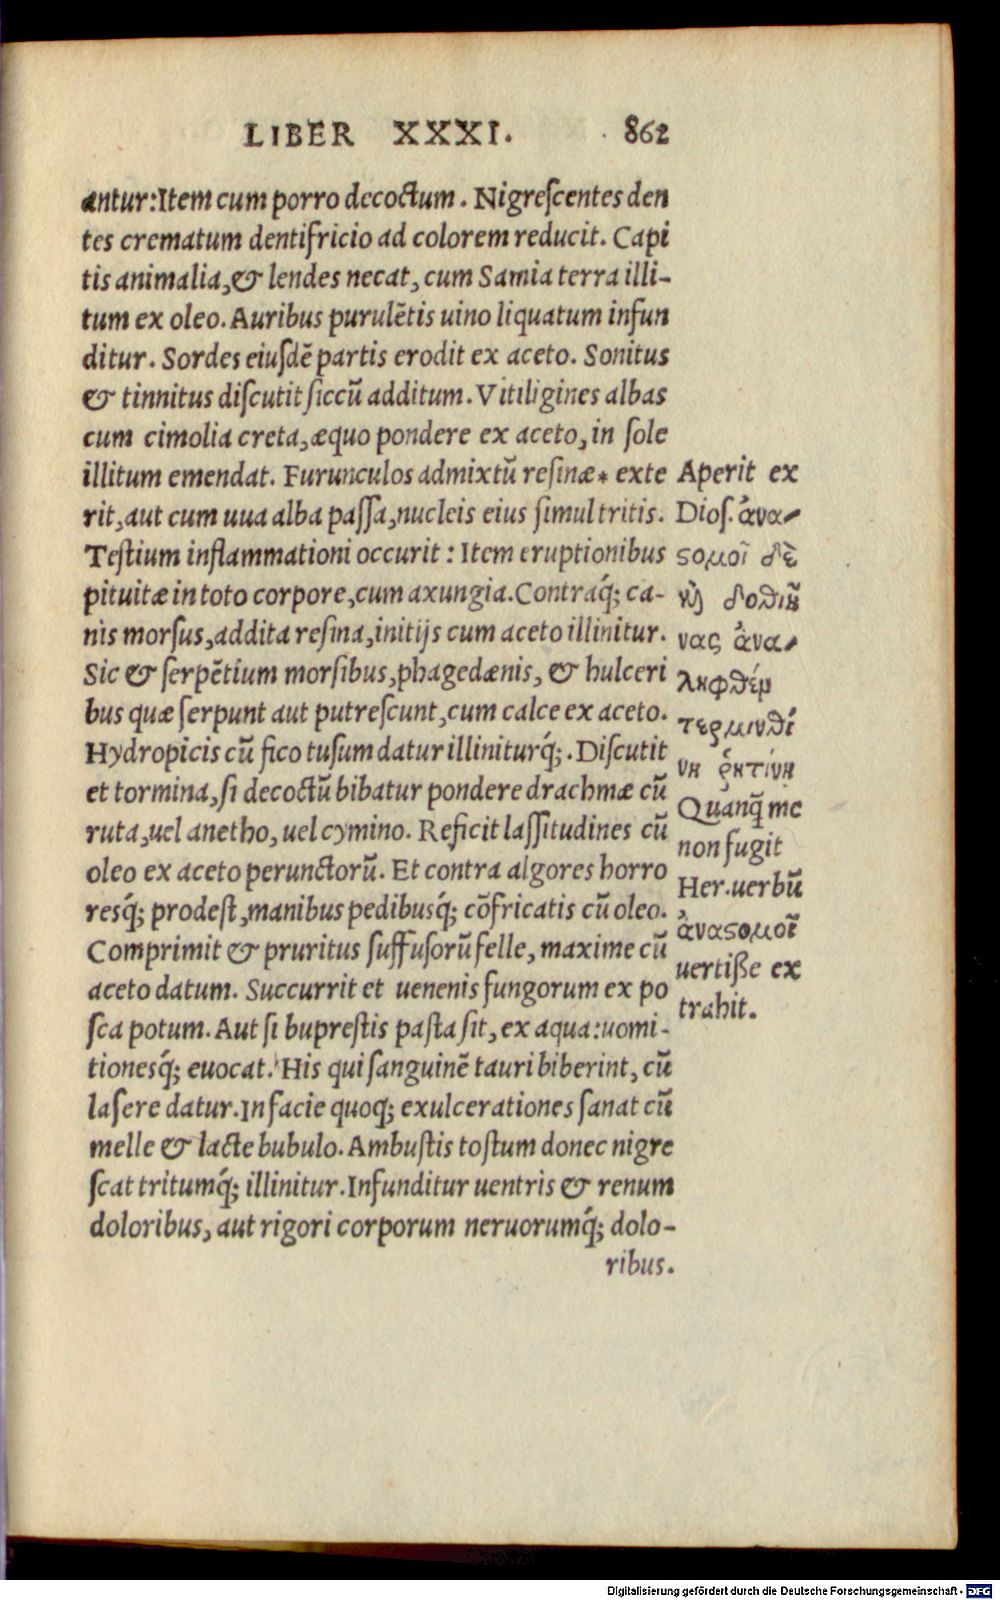 LIBER XXXI. 862
antur:Item cum porro decoctum. Nigreſcentes den
tes crematum dentifricio ad colorem reducit. Capi
tis animalia,& lendes necat, cum Samia terra illi-
tum ex oleo. Auribus purulētis uino liquatum infun
ditur. Sordes eiuſdē partis erodit ex aceto. Sonitus
& tinnitus diſcutit ſiccū additum. Vitiligines albas
cum cimolia creta,æquo pondere ex aceto,in ſole
illitum emendat. Furunculos admixtū reſinæ* exte
rit,aut cum uua alba paſſa,nucleis eius ſimul tritis.
Teſtium inflammationi occurit: Item eruptionibus
pituitæ in toto corpore,cum axungia.Contraq́; ca-
nis morſus,addita reſina,initijs cum aceto illinitur.
Sic & ſerpētium morſibus,phagedænis, & hulceri
bus quæ ſerpunt aut putreſcunt,cum calce ex aceto.
Hydropicis cū fico tuſum datur illiniturq́;. Diſcutit
et tormina,ſi decoctū bibatur pondere drachmæ cū
ruta,uel anetho, uel cymino. Reficit laſſitudines cū
oleo ex aceto perunctorū. Et contra algores horro
resq́; prodeſt,manibus pedibusq́; cōfricatis cū oleo.
Comprimit & pruritus ſuffuſorū felle, maxime cū
aceto datum. Succurrit et uenenis fungorum ex po
ſca potum. Aut ſi bupreſtis paſta ſit, ex aqua:uomi-
tionesq́; euocat. His qui ſanguinē tauri biberint, cū
laſere datur.In facie quoq; exulcerationes ſanat cū
melle & lacte bubulo. Ambuſtis toſtum donec nigre
ſcat tritumq́; illinitur. Infunditur uentris & renum
doloribus, aut rigori corporum neruorumq́; dolo-
ribus.
Aperit ex
Dioſ. ἀνα-
ςομοῖ δὲ
κὶ δοθιῆ
νας ἀνα-
ληφθέν
τερμινθί
νη ῥητίνη
Quanq̄ me
non fugit
Her.uerbū
ἀναςομοῖ
uertiße ex
trahit.
Digitalisierung gefördert durch die Deutsche Forschungsgemeinschaft - DFG